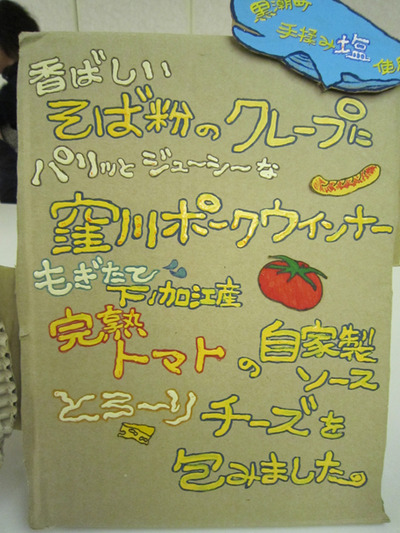 黒潮町
手揉み塩
使用
香ばしい
そば粉のクレープに
パリッとジューシーな
窪川ポークウインナー
もぎたて
下ノ加江産
完熟
トマト
の自家製
ソース
とろ〜り
チーズを
包みました。